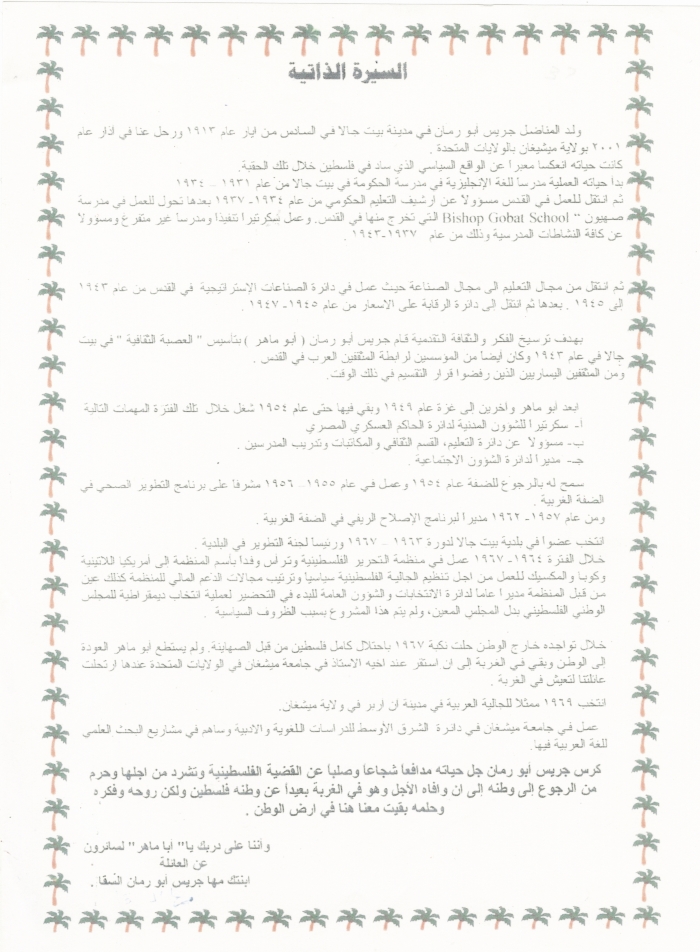 السيرة الذاتية
ولد المناضل جريس أبو رمان في مدينة بيت جالا في السادس من ايار عام ١٩١٣ ورحل عنا في اذار عام
٢٠٠١ بولاية ميشيغان بالولايات المتحدة .
كانت حياته انعكسا معبرا عن الواقع السياسي الذي ساد في فلسطين خلال تلك الحقبة.
بدأ حياته العملية مدرسا للغة الإنجليزية في مدرسة الحكومة في بيت جالا من عام ١٩٣١ – ١٩٣٤
ثم انتقل للعمل في القدس مسؤولا عن ارشيف التعليم الحكومي من عام ١٩٣٤- ١٩٣٧ بعدها تحول للعمل في مدرسة
صهيون " Bishop Gobat School التي تخرج منها في القدس. وعمل سكرتيرا تنفيذا ومدرسا غير متفرغ ومسؤولا
عن كافة النشاطات المدرسية وذلك من عام ١٩٣٧-١٩٤٣ .
ثم انتقل من مجال التعليم الى مجال الصناعة حيث عمل في دائرة الصناعات الإستراتيجية في القدس من عام ١٩٤٣
إلى ١٩٤٥ . بعدها ثم انتقل الى دائرة الرقابة على الاسعار من عام ١٩٤٥- ١٩٤٧ .
بهدف ترسيخ الفكر والثقافة التقدمية قام جريس أبو رمان ( أبو ماهر ) بتأسيس " العصبة الثقافية " في بيت
جالا في عام ١٩٤٣ وكان أيضا من المؤسسين لرابطة المثقفين العرب في القدس .
ومن المثقفين اليساريين الذين رفضوا قرار التقسيم في ذلك الوقت.
ابعد أبو ماهر وآخرين إلى غزة عام ١٩٤٩ وبقي فيها حتى عام ١٩٥٤ شغل خلال تلك الفترة المهمات التالية
أ- سكرتيرا للشؤون المدنية لدائرة الحاكم العسكري المصري
ب- مسؤولا عن دائرة التعليم، القسم الثقافي والمكاتبات وتدريب المدرسين .
جـ- مديرا لدائرة الشؤون الاجتماعية .
سمح له بالرجوع للضفة عام ١٩٥٤ وعمل في عام ١٩٥٥- ١٩٥٦ مشرفا على برنامج التطوير الصحي في
الضفة الغربية .
ومن عام ١٩٥٧- ١٩٦٢ مديرا لبرنامج الإصلاح الريفي في الضفة الغربية .
انتخب عضوا في بلدية بيت جالا لدورة ١٩٦٣ – ١٩٦٧ ورئيسا لجنة التطوير في البلدية .
خلال الفترة ١٩٦٤- ١٩٦٧ عمل في منظمة التحرير الفلسطينية وترأس وفدا بأسم المنظمة الى أمريكيا اللاتينية
وكوبا والمكسيك للعمل من اجل تنظيم الجالية الفلسطينية سياسيا وترتيب مجالات الدعم المالي للمنظمة كذلك عين
من قبل المنظمة مديرا عاما لدائرة الانتخابات والشؤون العامة للبدء في التحضير لعملية انتخاب ديمقراطية للمجلس
الوطني الفلسطيني بدل المجلس المعين، ولم يتم هذا المشروع بسبب الظروف السياسية .
خلال تواجده خارج الوطن حلت نكبة ١٩٦٧ باحتلال كامل فلسطين من قبل الصهاينة. ولم يستطع أبو ماهر العودة
إلى الوطن وبقي في الغربة الى ان استقر عند اخيه الاستاذ في جامعة ميشغان في الولايات المتحدة عندها ارتحلت
عائلتنا لتعيش في الغربة .
انتخب ١٩٦٩ ممثلا للجالية العربية في مدينة ان اربر في ولاية ميشغان.
عمل في جامعة ميشغان في دائرة الشرق الأوسط للدراسات اللغوية والادبية وساهم في مشاريع البحث العلمي
للغة العربية فيها.
كرس جريس أبو رمان جل حياته مدافعا شجاعا وصلبا عن القضية الفلسطينية وتشرد من اجلها وحرم
من الرجوع إلى وطنه إلى ان وافاه الأجل وهو في الغربة بعيدا عن وطنه فلسطين ولكن روحه وفكره
وحلمه بقيت معنا هنا في ارض الوطن .
وأننا على دربك يا" أبا ماهر" لسائرون
عن العائلة
ابنتك مها جريس أبو رمان السقا .